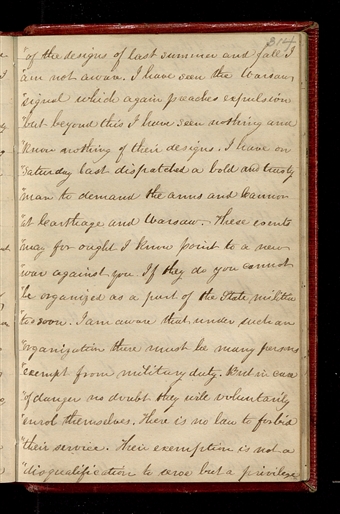 314
"of the designs of last summer and fall I
am not aware. I have seen the Warsaw
"signal which again preaches expulsion
"but beyond this I have seen nothing and
"know nothing of their designs. I have on
"Saturday last dispatched a bold and trusty
"man to demand the arms and cannon
"at Carthage and Warsaw. These events
"may for ought I know point to a new
"war against you. If they do you cannot
"be organized as a part of the State militia
"too soon. I am aware that under such an
"organization there must be many persons
"exempt from military duty. But in case
"of danger no doubt they will voluntarily
"enrol themselves. There is no law to forbid
"their service. Their exemption is not a
"disqualification to serve but a privilege